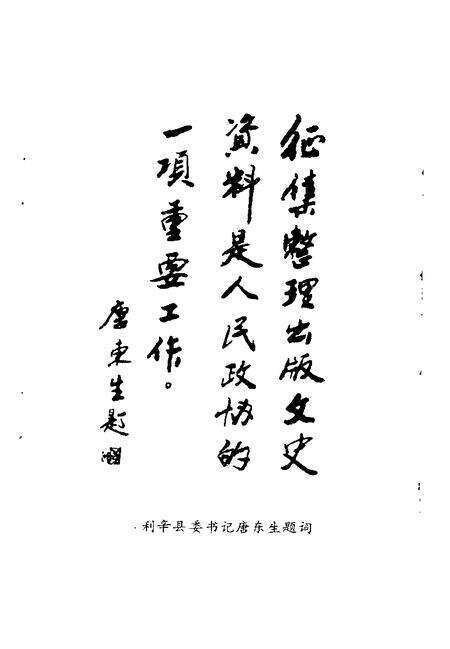 征集整理出版文史
資料是人民政协的
一項重要工作。
唐东生题
利辛县委书记唐东生题词